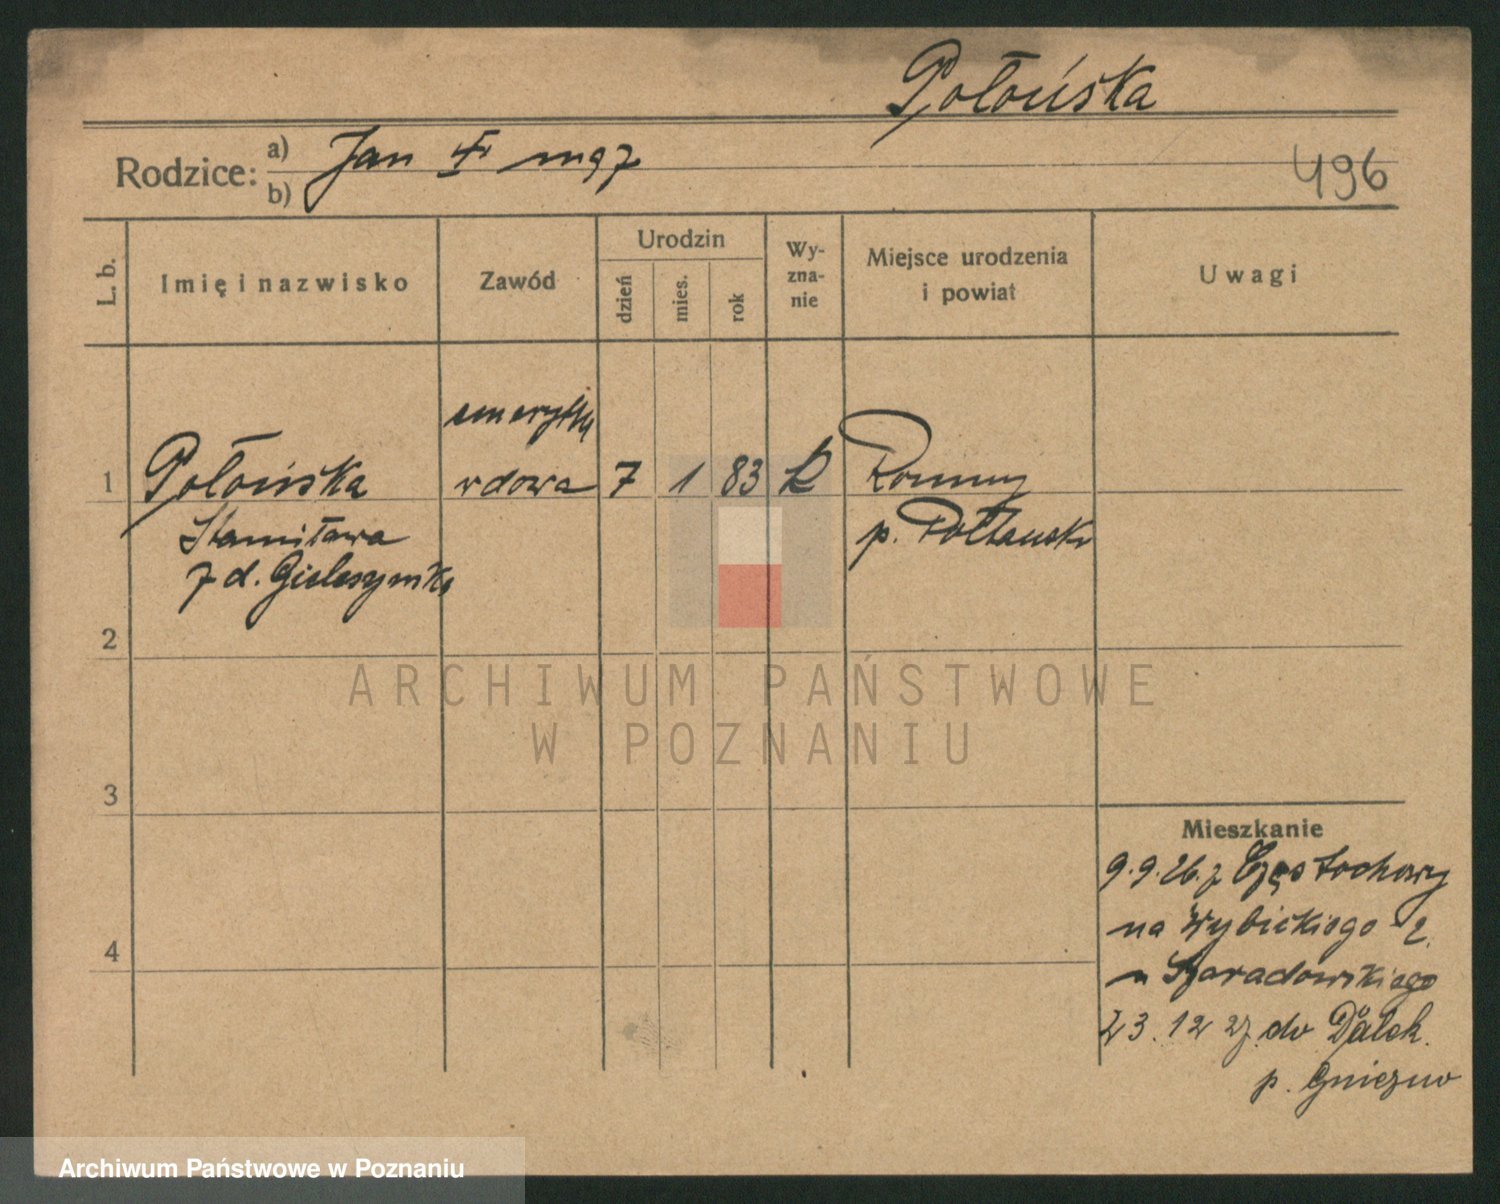 Połońska
Rodzice: a) Jan I mąż
b)
496
L. b.
Imię i nazwisko
Zawód
Urodzin
dzień
mies.
rok
Wy-
zna-
nie
Miejsce urodzenia
i powiat
Uwagi
emerytka
1 Połońska wdowa 7 1 83 k Romny
Stanisława p. Połtawsk
z d.
2
3
4
ARCHIWUM PAŃSTWOWE
W POZNANIU
Mieszkanie
9.9.26. z Częstochowy
na Wybickiego 2.
u Szaradowskiego
23.12 27. do Dalek.
p. Gniezno
Archiwum Państwowe w Poznaniu